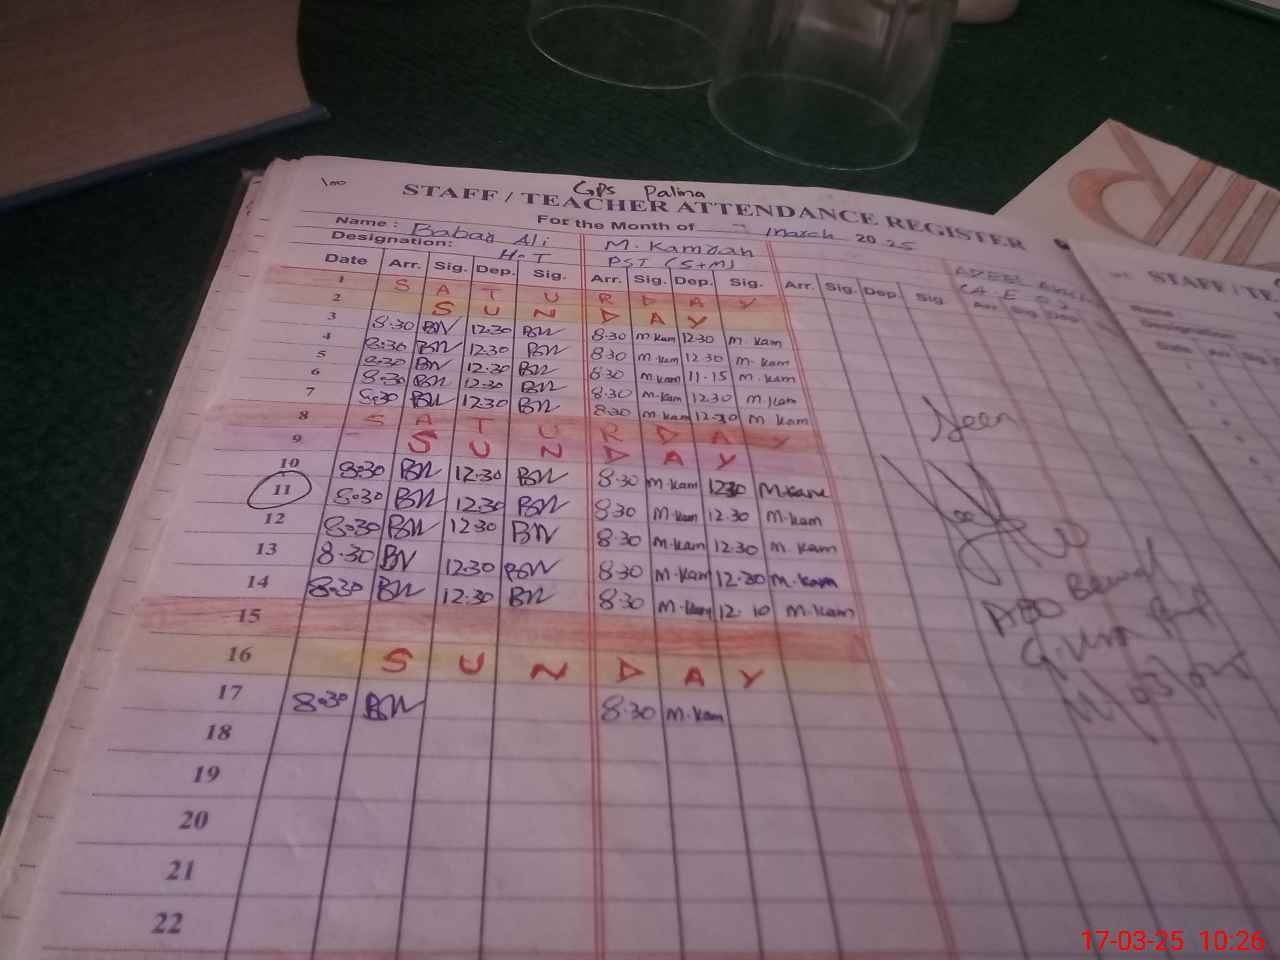 GPS Palina
STAFF / TEACHER ATTENDANCE REGISTER
For the Month of March 2025
Name : Babar Ali M. Kamran
Designation: H.T PST (S+M)
Date Arr. Sig. Dep. Sig. Arr. Sig. Dep. Sig. Arr. Sig. Dep. Sig.
1 SATURDAY
2 SUNDAY
3 8.30 BN 12.30 BN 8.30 M.Kam 12.30 M.Kam
4 8.30 BN 12.30 BN 8.30 M.Kam 12.30 M.Kam
5 8.30 BN 12.30 BN 8.30 M.Kam 11.15 M.Kam
6 8.30 BN 12.30 BN 8.30 M.Kam 12.30 M.Kam
7 8.30 BN 12.30 BN 8.30 M.Kam 12.30 M.Kam
8 SATURDAY
9 SUNDAY
10 8.30 BN 12.30 BN 8.30 M.Kam 12.30 M.Kam
11 8.30 BN 12.30 BN 8.30 M.Kam 12.30 M.Kam
12 8.30 BN 12.30 BN 8.30 M.Kam 12.30 M.Kam
13 8.30 BN 12.30 BN 8.30 M.Kam 12.30 M.Kam
14 8.30 BN 12.30 BN 8.30 M.Kam 12.10 M.Kam
15
16 SUNDAY
17 8.30 BN 8.30 M.Kam
18
19
20
21
22
Seen
STAFF / TE
17-03-25 10:26